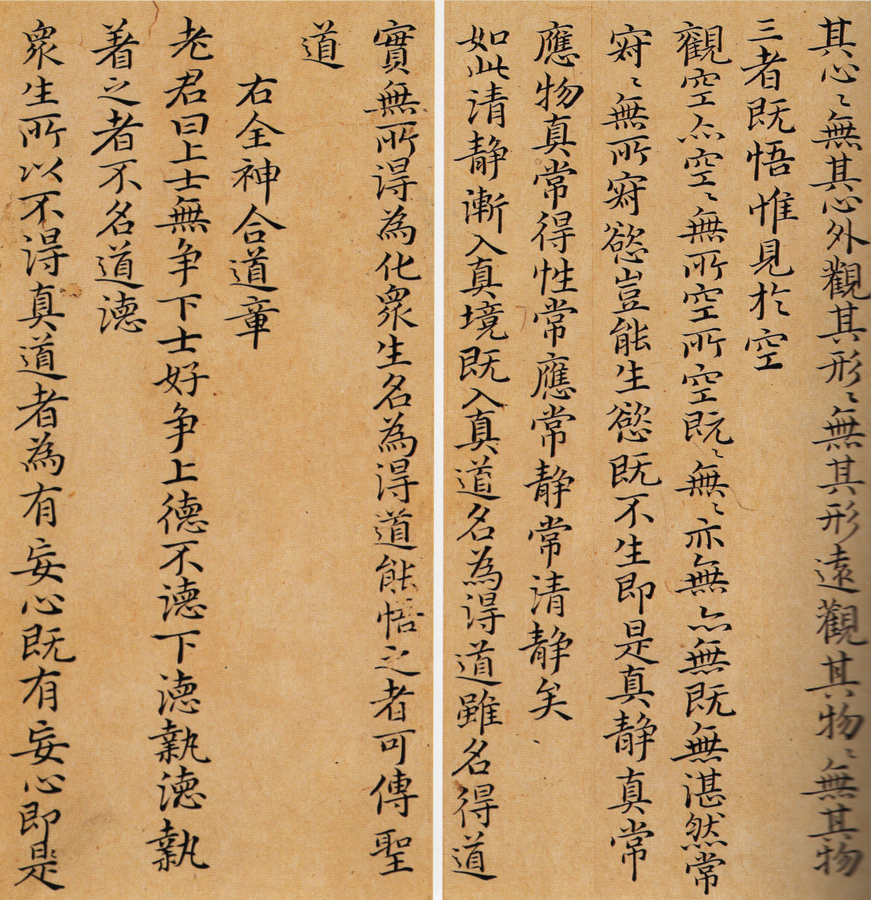 其心〻無其心外觀其形〻無其形遠觀其物〻無其物
三者既悟惟見於空
觀空亦空〻無所空所空既〻無〻亦無亦無既無湛然常
寂〻無所寂慾豈能生慾既不生即是真静真常
應物真常得性常應常静常清静矣
如此清静漸入真境既入真道名為得道雖名得道
實無所得為化衆生名為得道能悟之者可傳聖
道
右全神合道章
老君曰上士無争下士好争上德不德下德執德執
着之者不名道德
衆生所以不得真道者為有妄心既有妄心即是